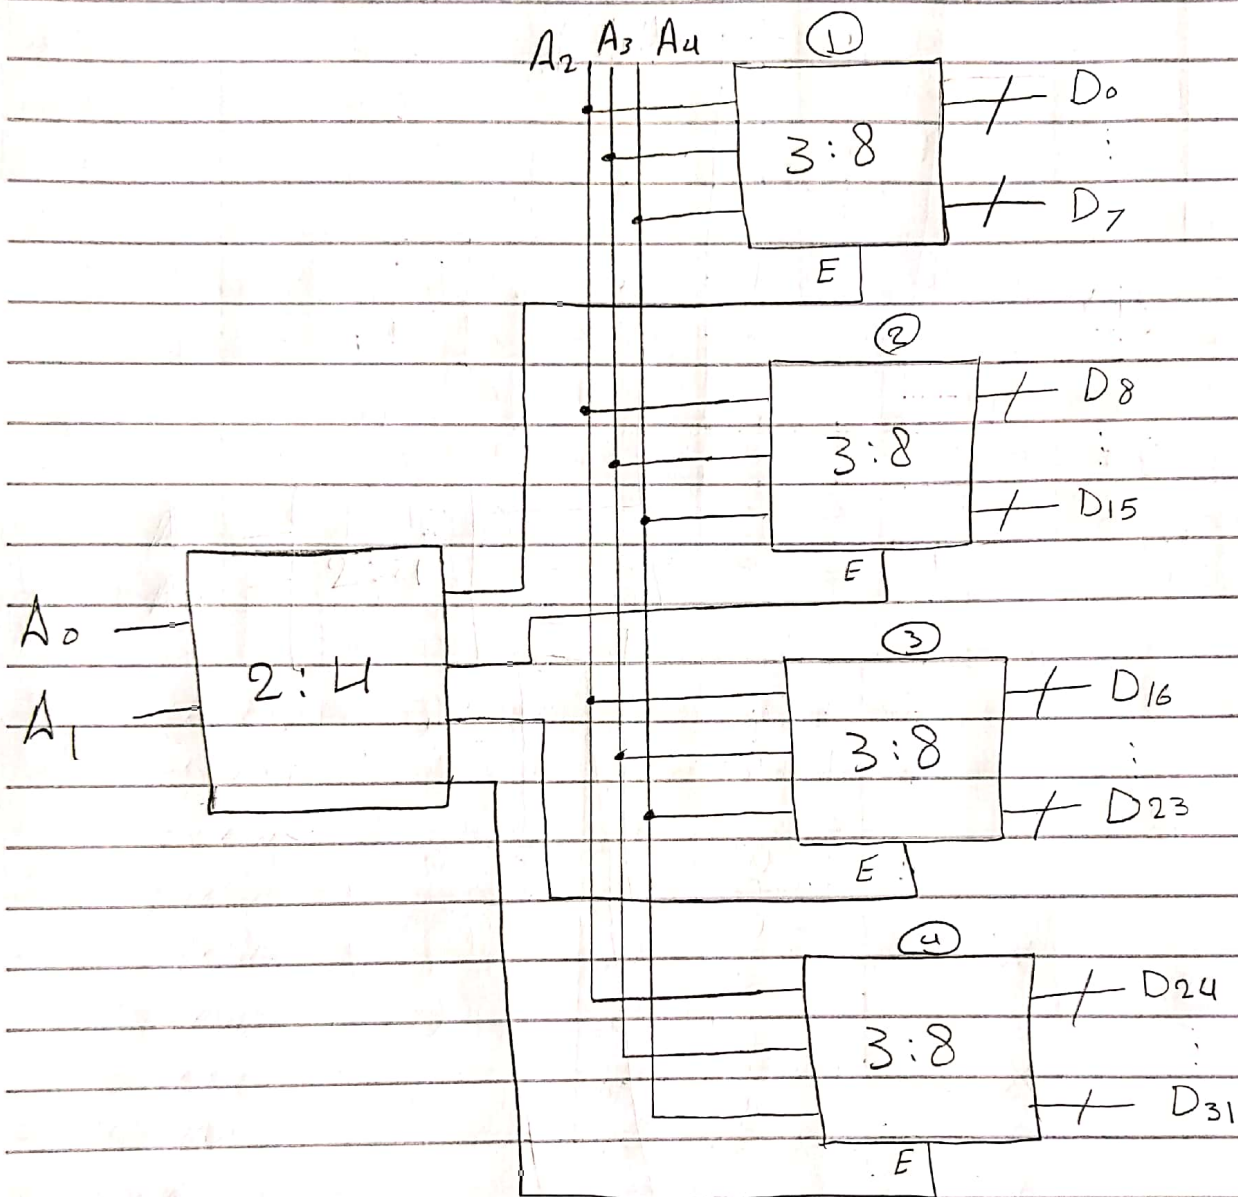 A2 A3 A4
1
3:8
D0
D7
E
2
3:8
D8
D15
E
A0
A1
2:4
3
3:8
D16
D23
E
4
3:8
D24
D31
E